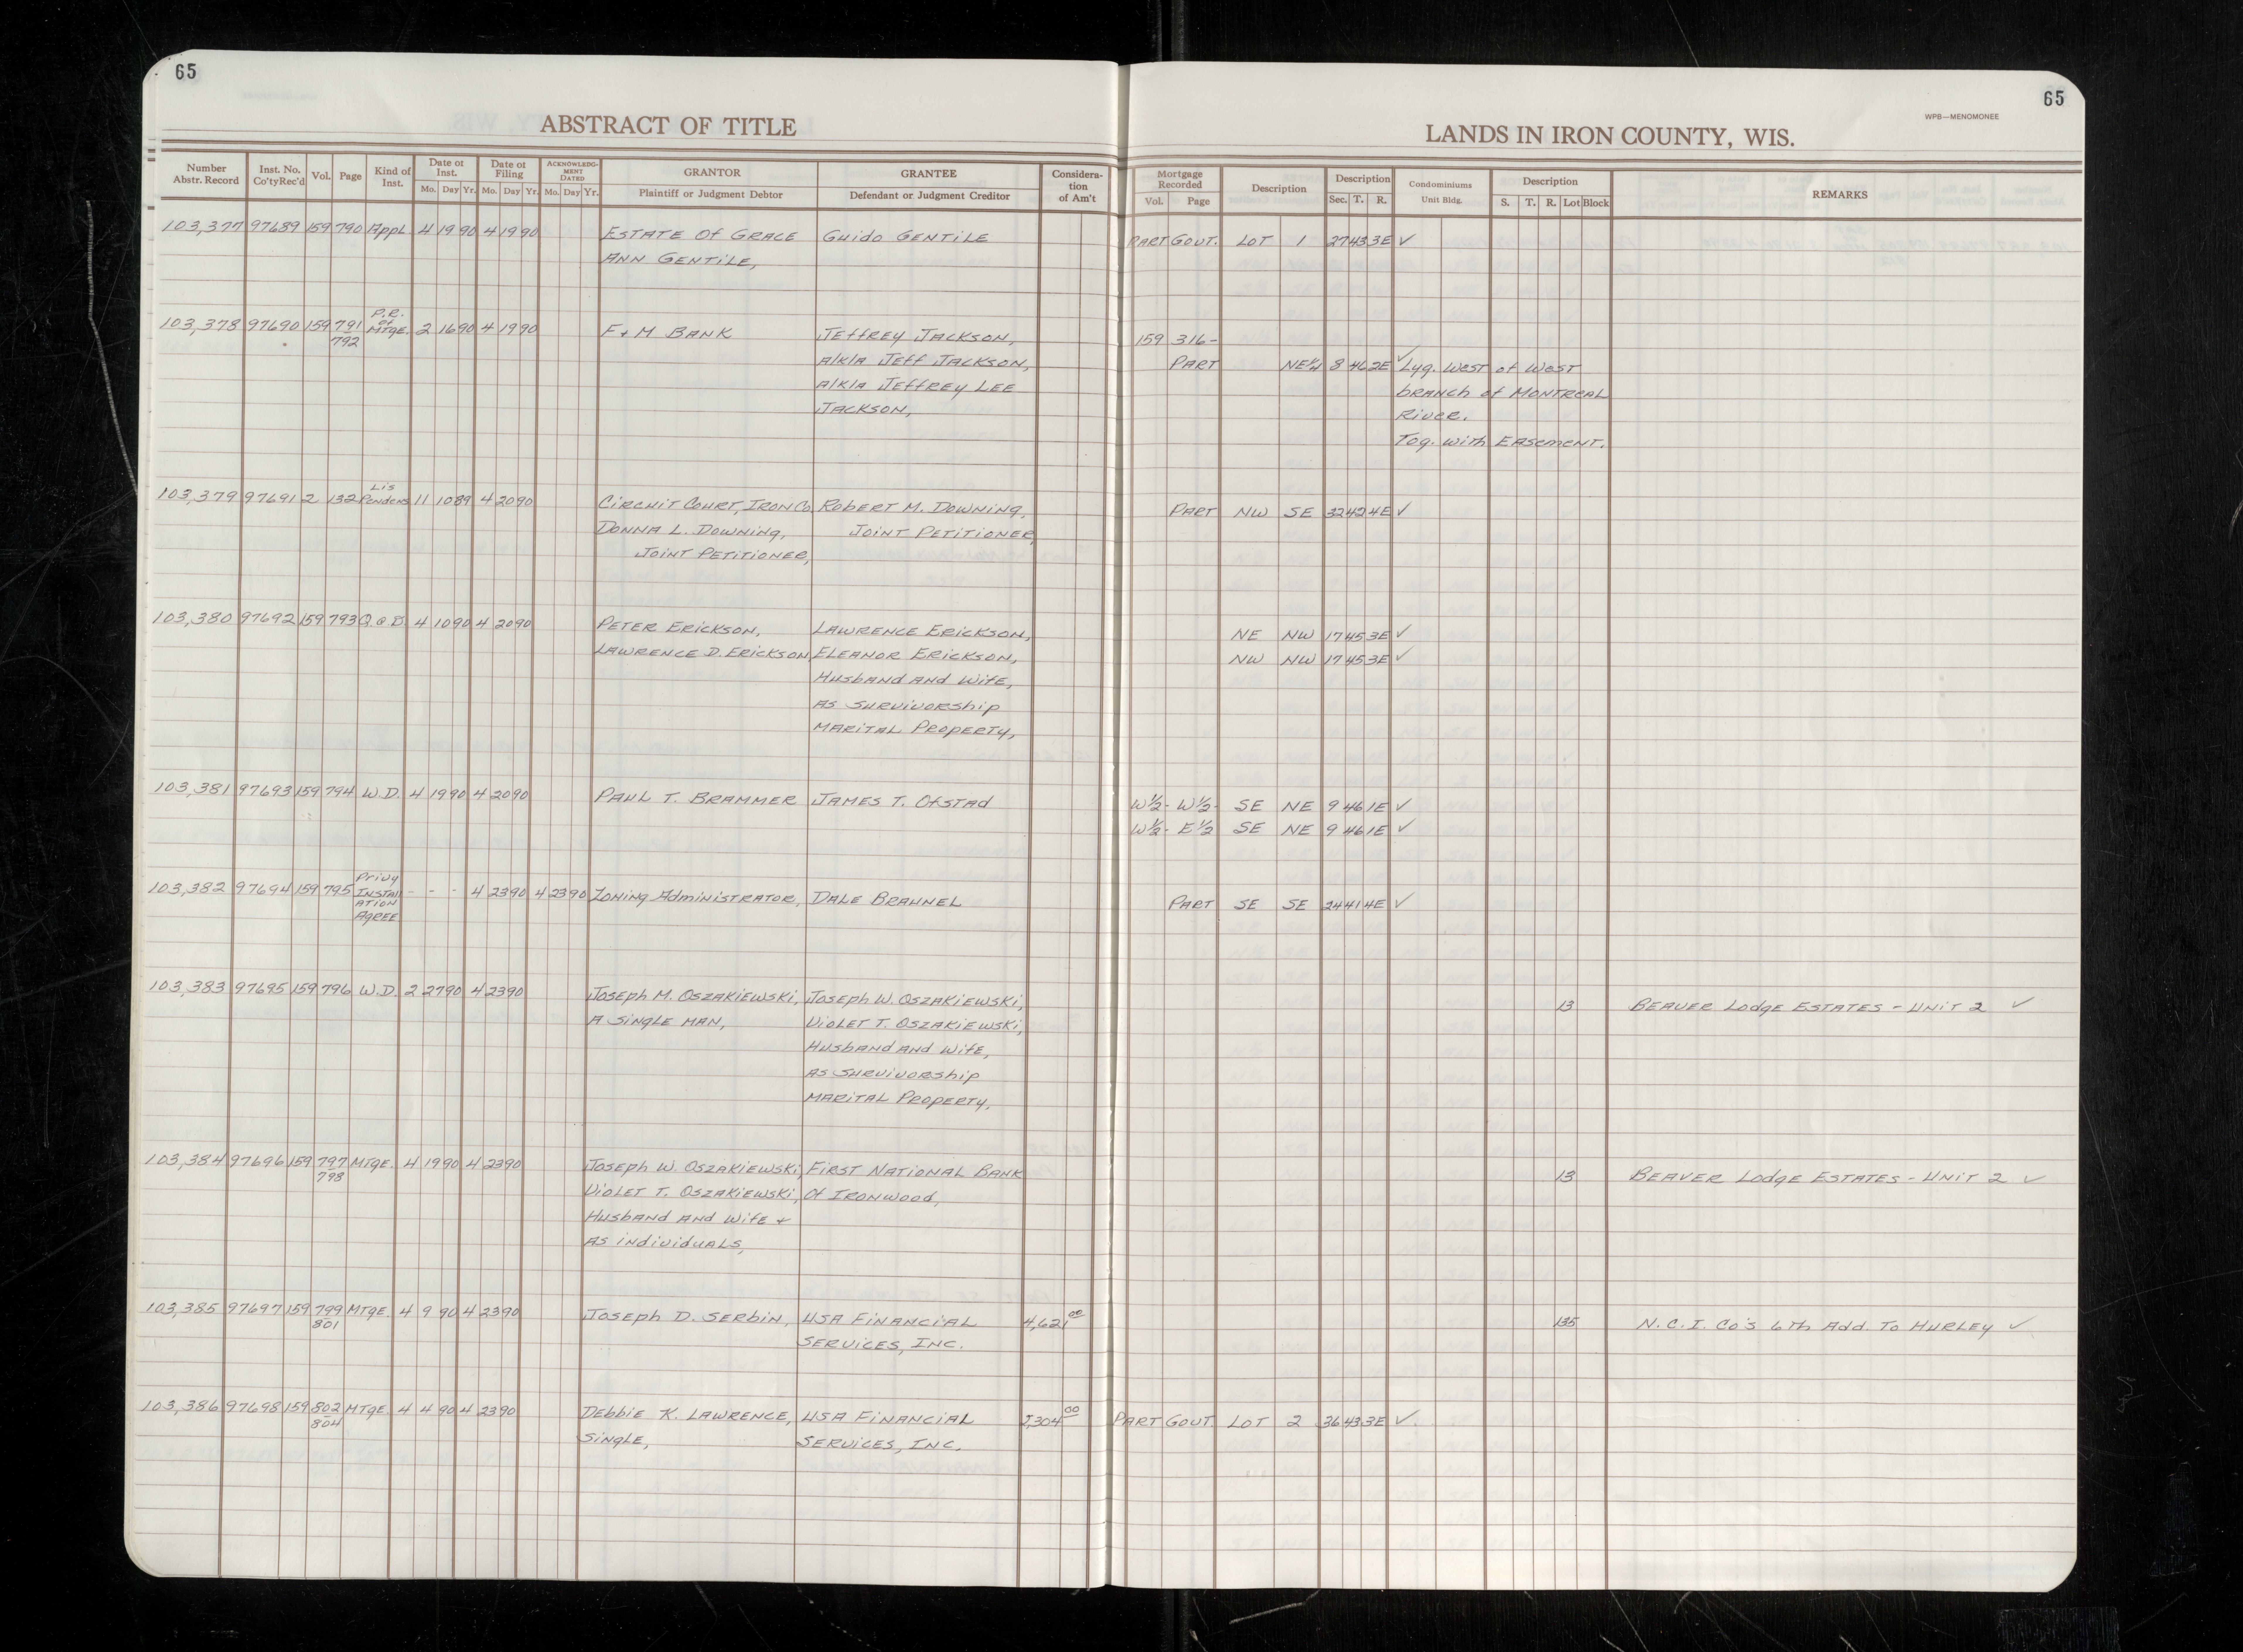 65
ABSTRACT OF TITLE
Number Abstr. Record Inst. No. Co'ty Rec'd Vol. Page Kind of Inst. Date of Inst. Mo. Day Yr. Date of Filing Mo. Day Yr. ACKNOWLEDGMENT DATED Mo. Day Yr. GRANTOR Plaintiff or Judgment Debtor GRANTEE Defendant or Judgment Creditor Consideration of Am't
65
WPB—MENOMONEE
LANDS IN IRON COUNTY, WIS.
Mortgage Recorded Vol. Page Description Description Sec. T. R. Condominiums Unit Bldg. Description S. T. R. Lot Block REMARKS
103,377 97689 159 790 Appl. 4 19 90 4 19 90 ESTATE Of GRACE Guido GENTiLE PART GOUT. LOT 1 27 43 3E ✓
ANN GENTiLE,
103,378 97690 159 791 P.R. of MTGE. 2 16 90 4 19 90 F & M BANK JEffREY JACKSON, 159 316-
792 A/K/A JEff JACKSON, PART NE¼ 8 46 2E ✓ Lyg. West of West
A/K/A JEffREY LEE branch of MONTREAL
JACKSON, RiVER.
Tog. with EASEMENT.
103,379 97691 2 132 Lis Pendens 11 10 89 4 20 90 CiRCUiT COURT, IRON Co. ROBERT M. DOWNiNg, PART NW SE 32 42 4E ✓
DONNA L. DOWNiNg, JOiNT PETiTiONER,
JOiNT PETiTiONER,
103,380 97692 159 793 Q.C.D. 4 10 90 4 20 90 PETER ERiCKSON, LAWRENCE ERiCKSON, NE NW 17 45 3E ✓
LAWRENCE D. ERiCKSON ELEANOR ERiCKSON, NW NW 17 45 3E ✓
HusbAND AND WifE,
AS SURViVORShip
MARiTAL PROPERTY,
103,381 97693 159 794 W.D. 4 19 90 4 20 90 PAUL T. BRAMMER JAMES T. OfSTAd W½- W½- SE NE 9 46 1E ✓
W½- E½ SE NE 9 46 1E ✓
103,382 97694 159 795 Privy INSTALLATION AGREE - - - 4 23 90 4 23 90 ZONiNg AdMiNiSTRATOR, DALE BRAUNEL PART SE SE 24 41 4E ✓
103,383 97695 159 796 W.D. 2 27 90 4 23 90 JOSEph M. OSZAKiEWSKi, JOSEph W. OSZAKiEWSKi, 13 BEAVER LodgE ESTATES - UNiT 2 ✓
A SiNgLE MAN, ViOLET T. OSZAKiEWSKi,
HusbAND AND WifE,
AS SURViVORShip
MARiTAL PROPERTY.
103,384 97696 159 797 MTGE. 4 19 90 4 23 90 JOSEph W. OSZAKiEWSKi, FiRST NATiONAL BANK 13 BEAVER LodgE ESTATES - UNiT 2 ✓
798 ViOLET T. OSZAKiEWSKi, Of IRONWOOd,
HusbAND AND WifE &
AS iNdiViduALS,
103,385 97697 159 799 MTGE. 4 9 90 4 23 90 JOSEph D. SERbiN, USA FiNANCiAL 4,621 00 135 N.C.I. Co's 6Th Add. To HURLEY ✓
801 SERViCES, INC.
103,386 97698 159 802 MTGE. 4 4 90 4 23 90 DEbbiE K. LAWRENCE, USA FiNANCiAL PART GOUT. LOT 2 36 43 3E ✓
804 SiNgLE, SERViCES, INC.